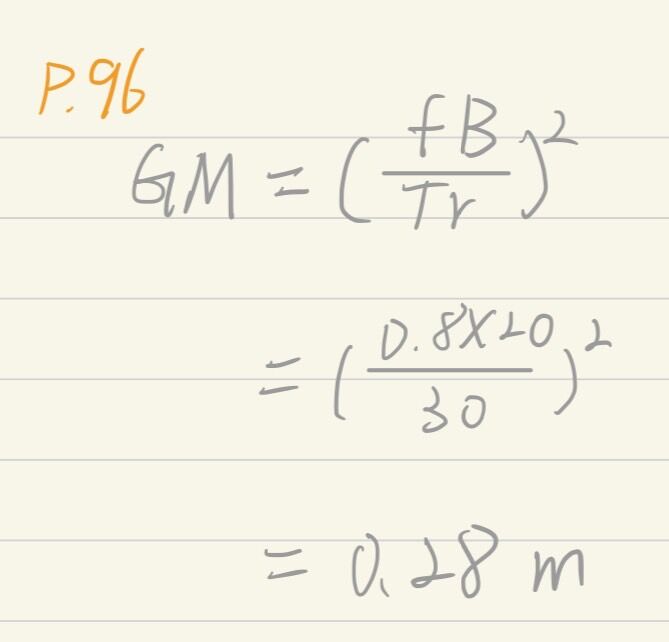 P.96
GM = (fB/Tr)²
= (0.8×20/30)²
= 0.28 m